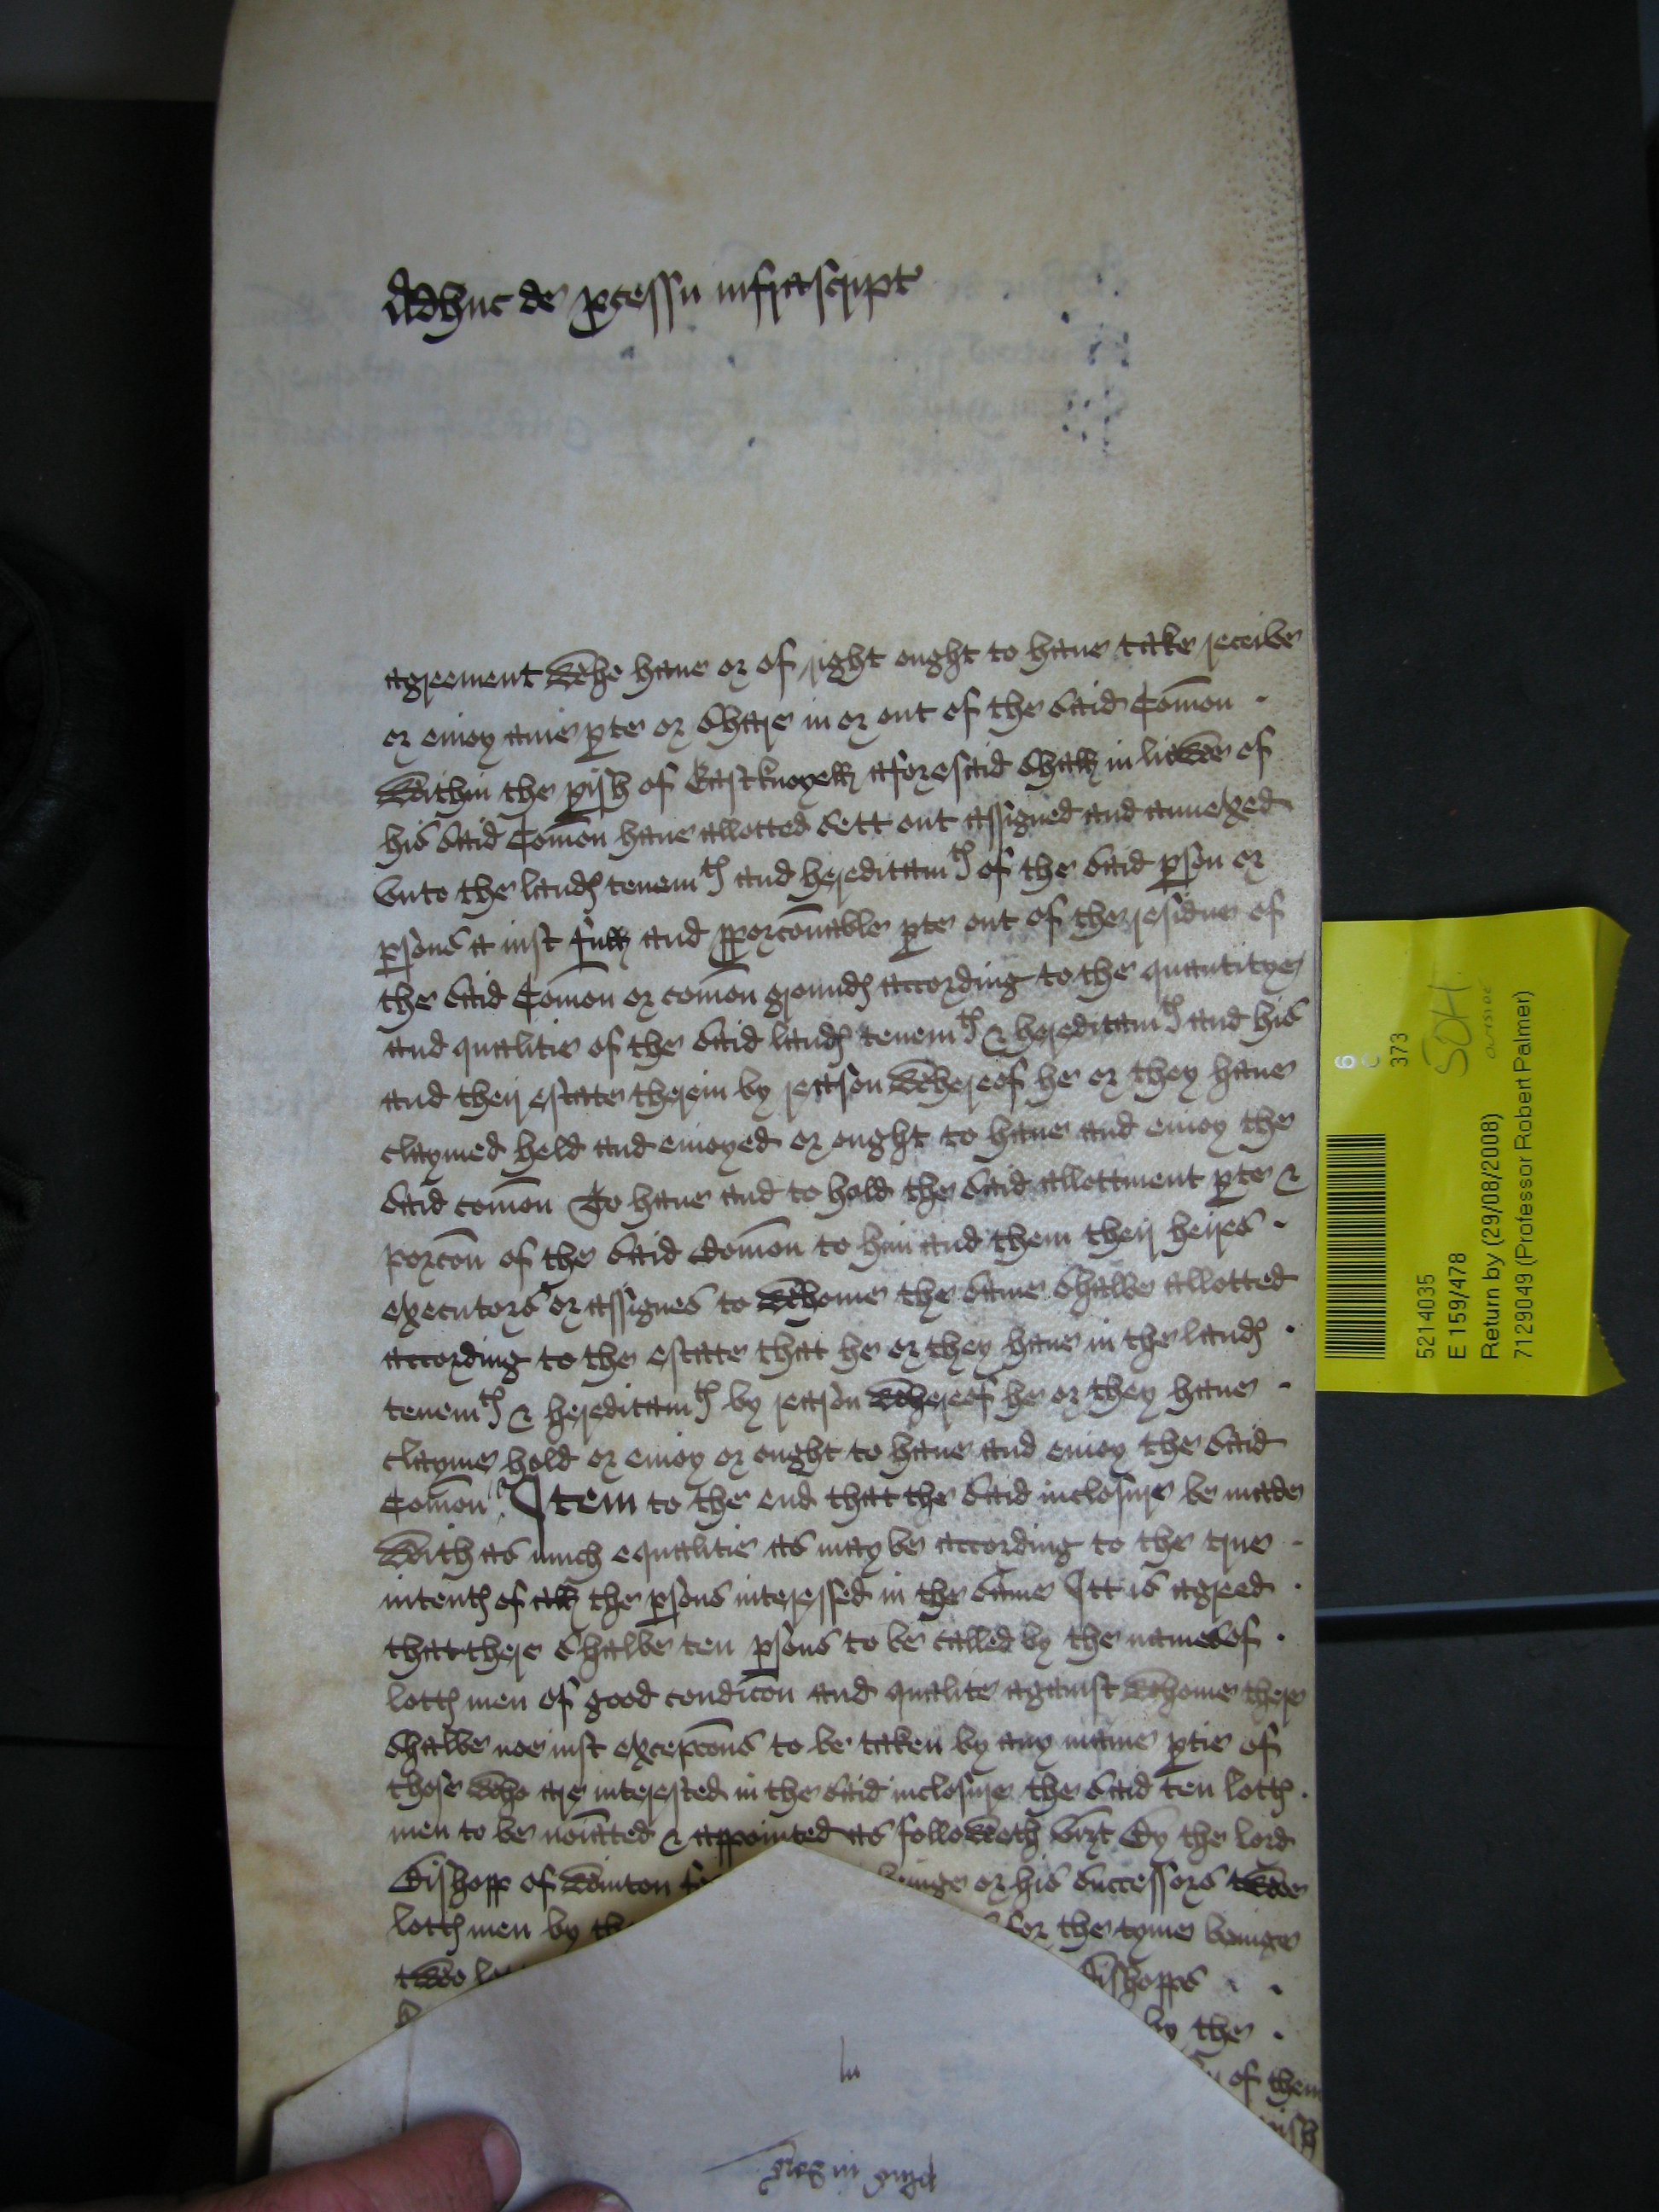 Adhuc de pcessu infrascript
agreement Whe haue or of right ought to haue take receive
or enioy anie pte or Share in or out of the Said Comon
Within the pish of Eastknoyell aforesaid Shall in liewe of
his Said Comon haue allotted Sett out assigned and annexed
vnto the lands tenemts and hereditamts of the Said pson or
psons a iust full and pporconable pte out of the residue of
the Said Comon or comon grounds according to the quantitye
and qualitie of the Said lands tenemts & hereditamts and his
and their estate therein by reason Whereof he or they haue
claymed held and enioyed or ought to haue and enioy the
Said comon To haue and to hold the Said allottment pte &
porcon of the Said Comon to him and them their heires
executors or assignes to Whome the Same Shalbe allotted
according to the estate that he or they haue in the lands
tenemts & hereditamts by reason Whereof he or they haue
clayme hold or enioy or ought to haue and enioy the Said
Comon Item to the end that the Said inclosure be made
With as much equalitie as may be according to the true
intents of all the psons interessed in the Same Itt is agreed
that there Shalbe ten psons to be called by the names of
lott men of good condicon and qualite against Whome there
Shalbe noe iust excepcons to be taken by any maine ptie of
those Who are interested in the Said inclosure the Said ten lott
men to be noiated & appointed as followeth vizt By the lord
Bishopp of Winton beinge or his Successors twoe
lott men by for the tyme beinge
twoe Bishopps
by the
of them
5214035
E 159/478
Return by (29/08/2008)
7129049 (Professor Robert Palmer)
373
SOH